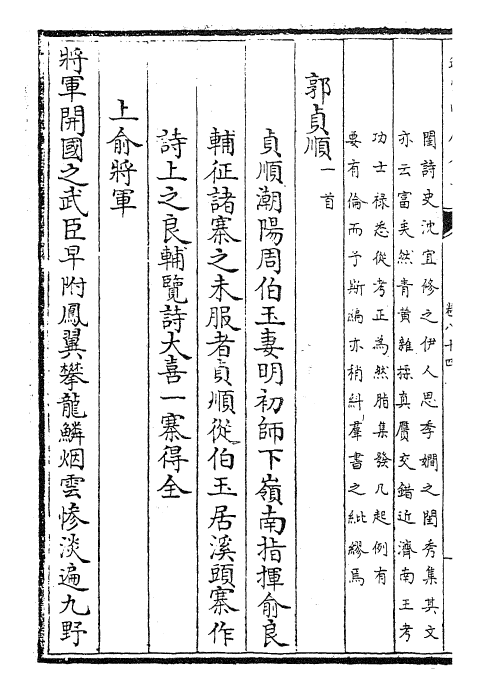 閨詩史沈宜修之伊人思季嫺之閨秀集其文
亦云富矣然青黄雜揉真贋交錯近濟南王考
功士禄悉從考正為然脂集發凡起例有
要有倫而予斯編亦稍糾羣書之紕繆焉
郭貞順一首
貞順潮陽周伯玉妻明初師下嶺南指揮俞良
輔征諸寨之未服者貞順從伯玉居溪頭寨作
詩上之良輔覽詩大喜一寨得全
上俞將軍
將軍開國之武臣早附鳳翼攀龍鱗烟雲慘淡遍九野
卷八十四